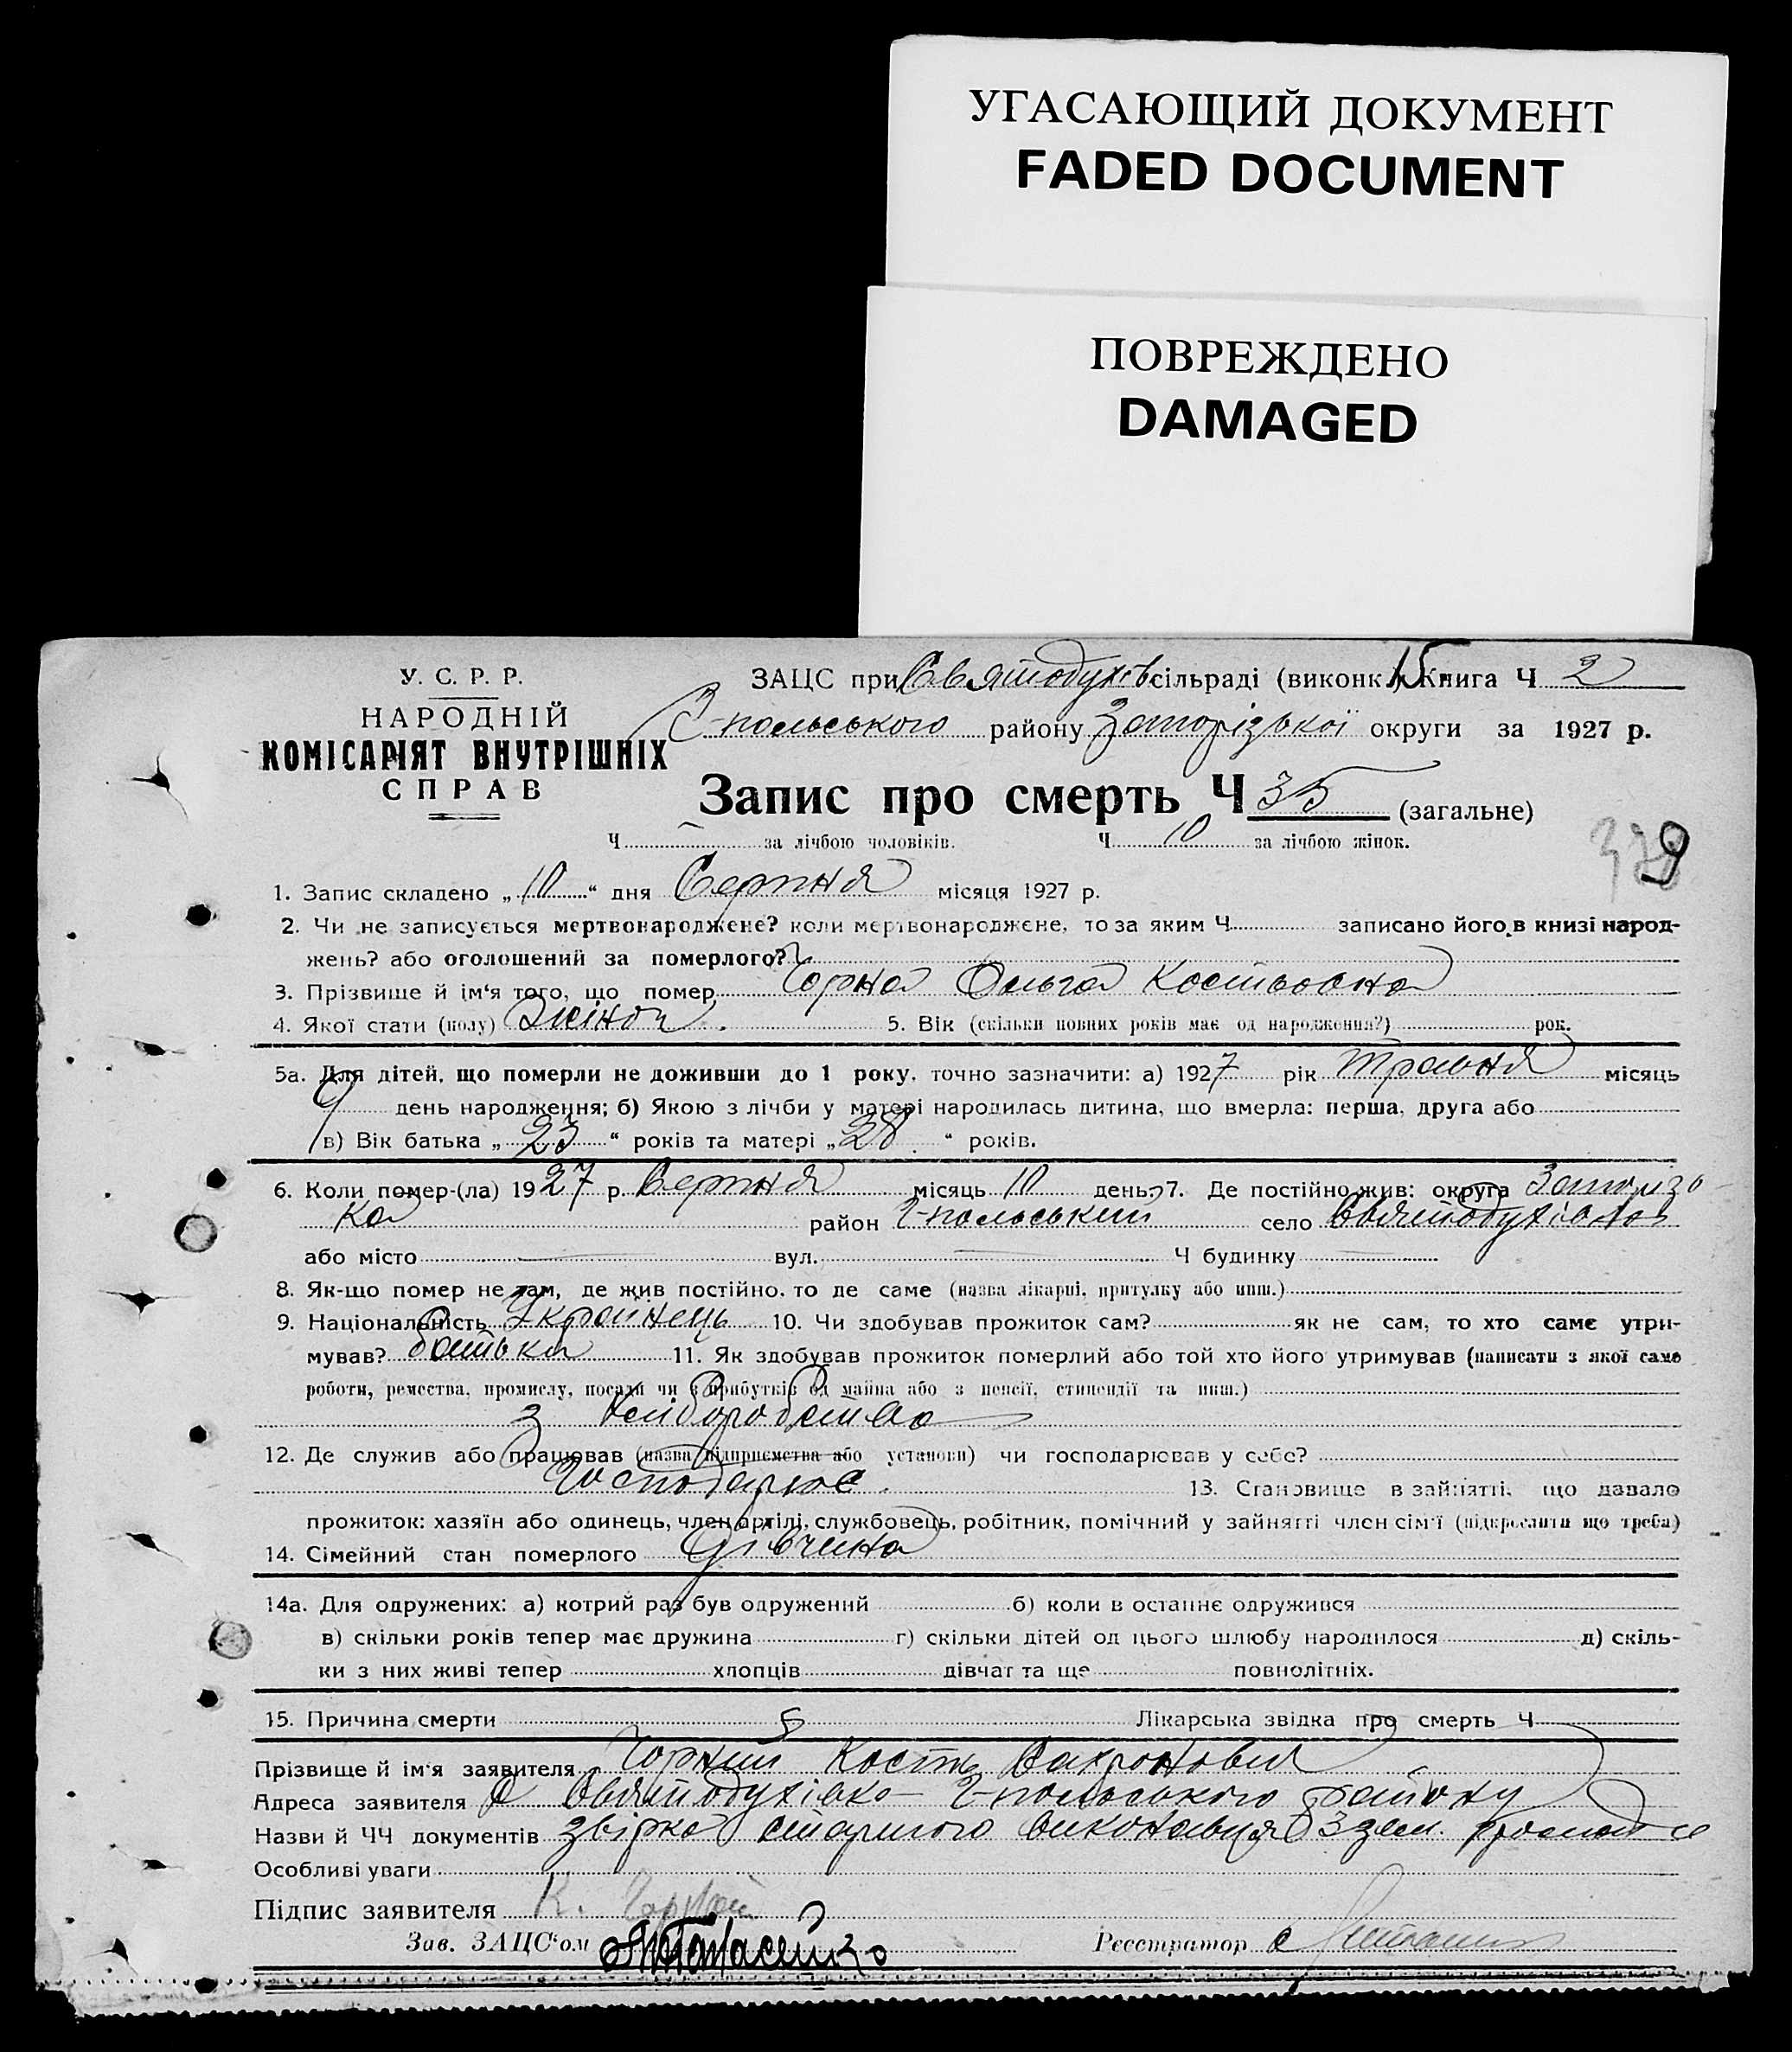 УГАСАЮЩИЙ ДОКУМЕНТ
FADED DOCUMENT
ПОВРЕЖДЕНО
DAMAGED
У. С. Р. Р.
НАРОДНІЙ
КОМІСАРІЯТ ВНУТРІШНІХ
СПРАВ
ЗАЦС при Святодухів сільраді (виконк.) 15. Книга Ч 2
-польського району Запорізької округи за 1927 р.
Запис про смерть Ч 35 (загальне)
Ч за лічбою чоловіків. Ч 10 за лічбою жінок.
9
1. Запис складено „ 10 “ дня Серпня місяця 1927 р.
2. Чи не записується мертвонароджене? коли мертвонароджене, то за яким Ч записано його в книзі народ-
жень? або оголошений за померлого?
3. Прізвище й ім'я того, що помер Чорна Ольга Костьовна
4. Якої стати (полу) Жіноч 5. Вік (скільки повних років має од народження?) рок.
5а. Для дітей, що померли не доживши до 1 року, точно зазначити: а) 1927 рік Травня місяць
9 день народження; б) Якою з лічби у матері народилась дитина, що вмерла: перша, друга або
в) Вік батька „ 23 “ років та матері „ 28 “ років.
6. Коли помер-(ла) 1927 р. Серпня місяць 10 день? 7. Де постійно жив: округа Запорізь-
ка район -польський село Святодухівка
або місто вул. Ч будинку
8. Як-що помер не там, де жив постійно, то де саме (назва лікарні, притулку або инш.)
9. Національність Українець 10. Чи здобував прожиток сам? як не сам, то хто саме утри-
мував? батько 11. Як здобував прожиток померлий або той хто його утримував (написати з якої саме
роботи, ремества, промислу, посади чи з прибутків од майна або з пенсії, стипендії та инш.)
з хліборобства
12. Де служив або працював (назва підприємства або установи) чи господарював у себе?
Господарює. 13. Становище в зайнятті, що давало
прожиток: хазяїн або одинець, член артілі, службовець, робітник, помічний у зайнятті член сім'ї (підкреслити що треба)
14. Сімейний стан померлого Дівчина
14а. Для одружених: а) котрий раз був одружений б) коли в останнє одружився
в) скільки років тепер має дружина г) скільки дітей од цього шлюбу народилося д) скіль-
ки з них живі тепер хлопців дівчат та ще повнолітніх.
15. Причина смерти Лікарська звідка про смерть Ч
Прізвище й ім'я заявителя Чорний Кость
Адреса заявителя с Святодухівка -польського району
Назви й ЧЧ документів старшого виконавця
Особливі уваги
Підпис заявителя К. Чорной
Зав. ЗАЦС'ом
Реєстратор